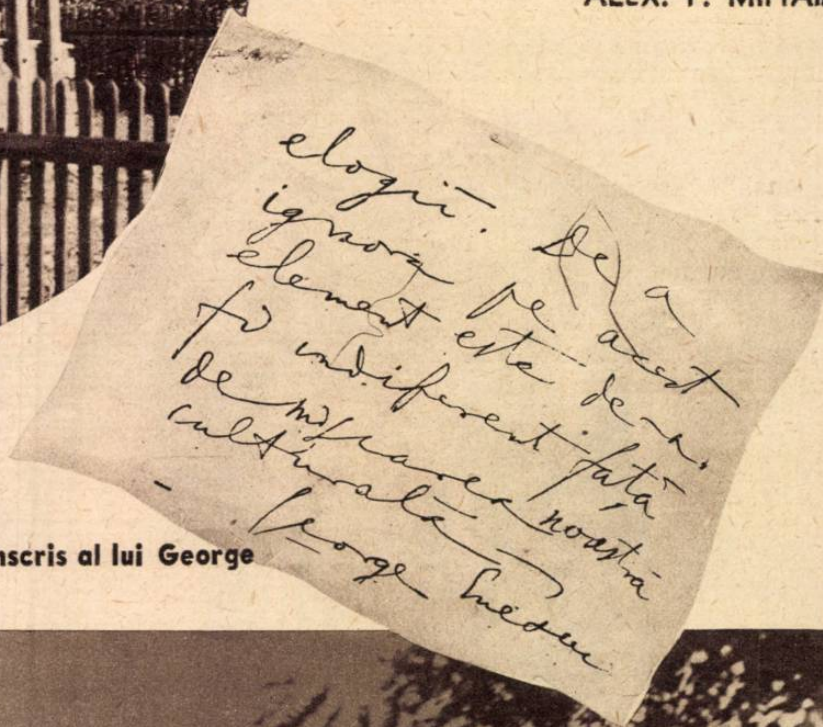 ALEX. F. MIHAI
elogii. De a
ignora pe acest
element este de-a.
fi indiferent față
de mișcarea noastră
culturală —
George Enescu
nscris al lui George